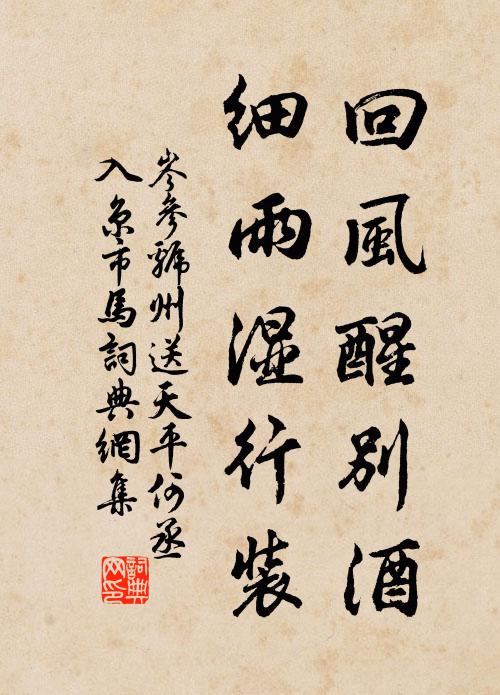 回風醒別酒
細雨湿行装
岑參虢州送天平何丞
入京市馬詞典網集
詞典
网印